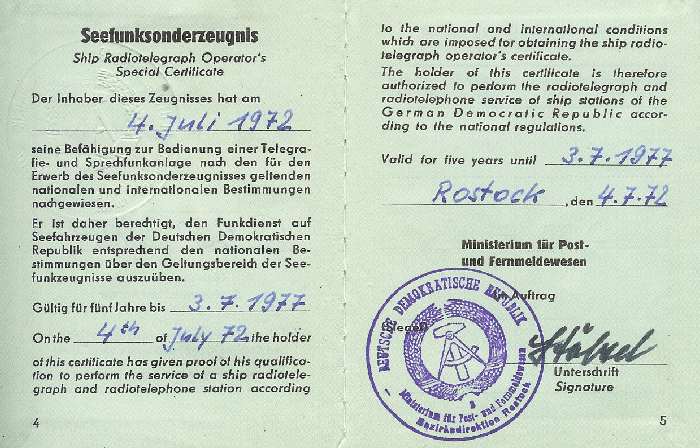 Seefunksonderzeugnis
Ship Radiotelegraph Operator's
Special Certificate
Der Inhaber dieses Zeugnisses hat am
4. Juli 1972
seine Befähigung zur Bedienung einer Telegra-
fie- und Sprechfunkanlage nach den für den
Erwerb des Seefunksonderzeugnisses geltenden
nationalen und internationalen Bestimmungen
nachgewiesen.
Er ist daher berechtigt, den Funkdienst auf
Seefahrzeugen der Deutschen Demokratischen
Republik entsprechend den nationalen Be-
stimmungen über den Geltungsbereich der See-
funkzeugnisse auszuüben.
Gültig für fünf Jahre bis 3.7.1977
On the 4th of July 72 the holder
of this certificate has given proof of his qualifica-
tion to perform the service of a ship radiotele-
graph and radiotelephone station according
4
to the national and international conditions
which are imposed for obtaining the ship radio-
telegraph operator's certificate.
The holder of this certificate is therefore
authorized to perform the radiotelegraph and
radiotelephone service of ship stations of the
German Democratic Republic accor-
ding to the national regulations.
Valid for five years until 3.7.1977
Rostock, den 4.7.72
Ministerium für Post-
und Fernmeldewesen
Im Auftrag
DEUTSCHE DEMOKRATISCHE REPUBLIK
Ministerium für Post- und Fernmeldewesen
Bezirksdirektion Rostock
Unterschrift
Signature
5